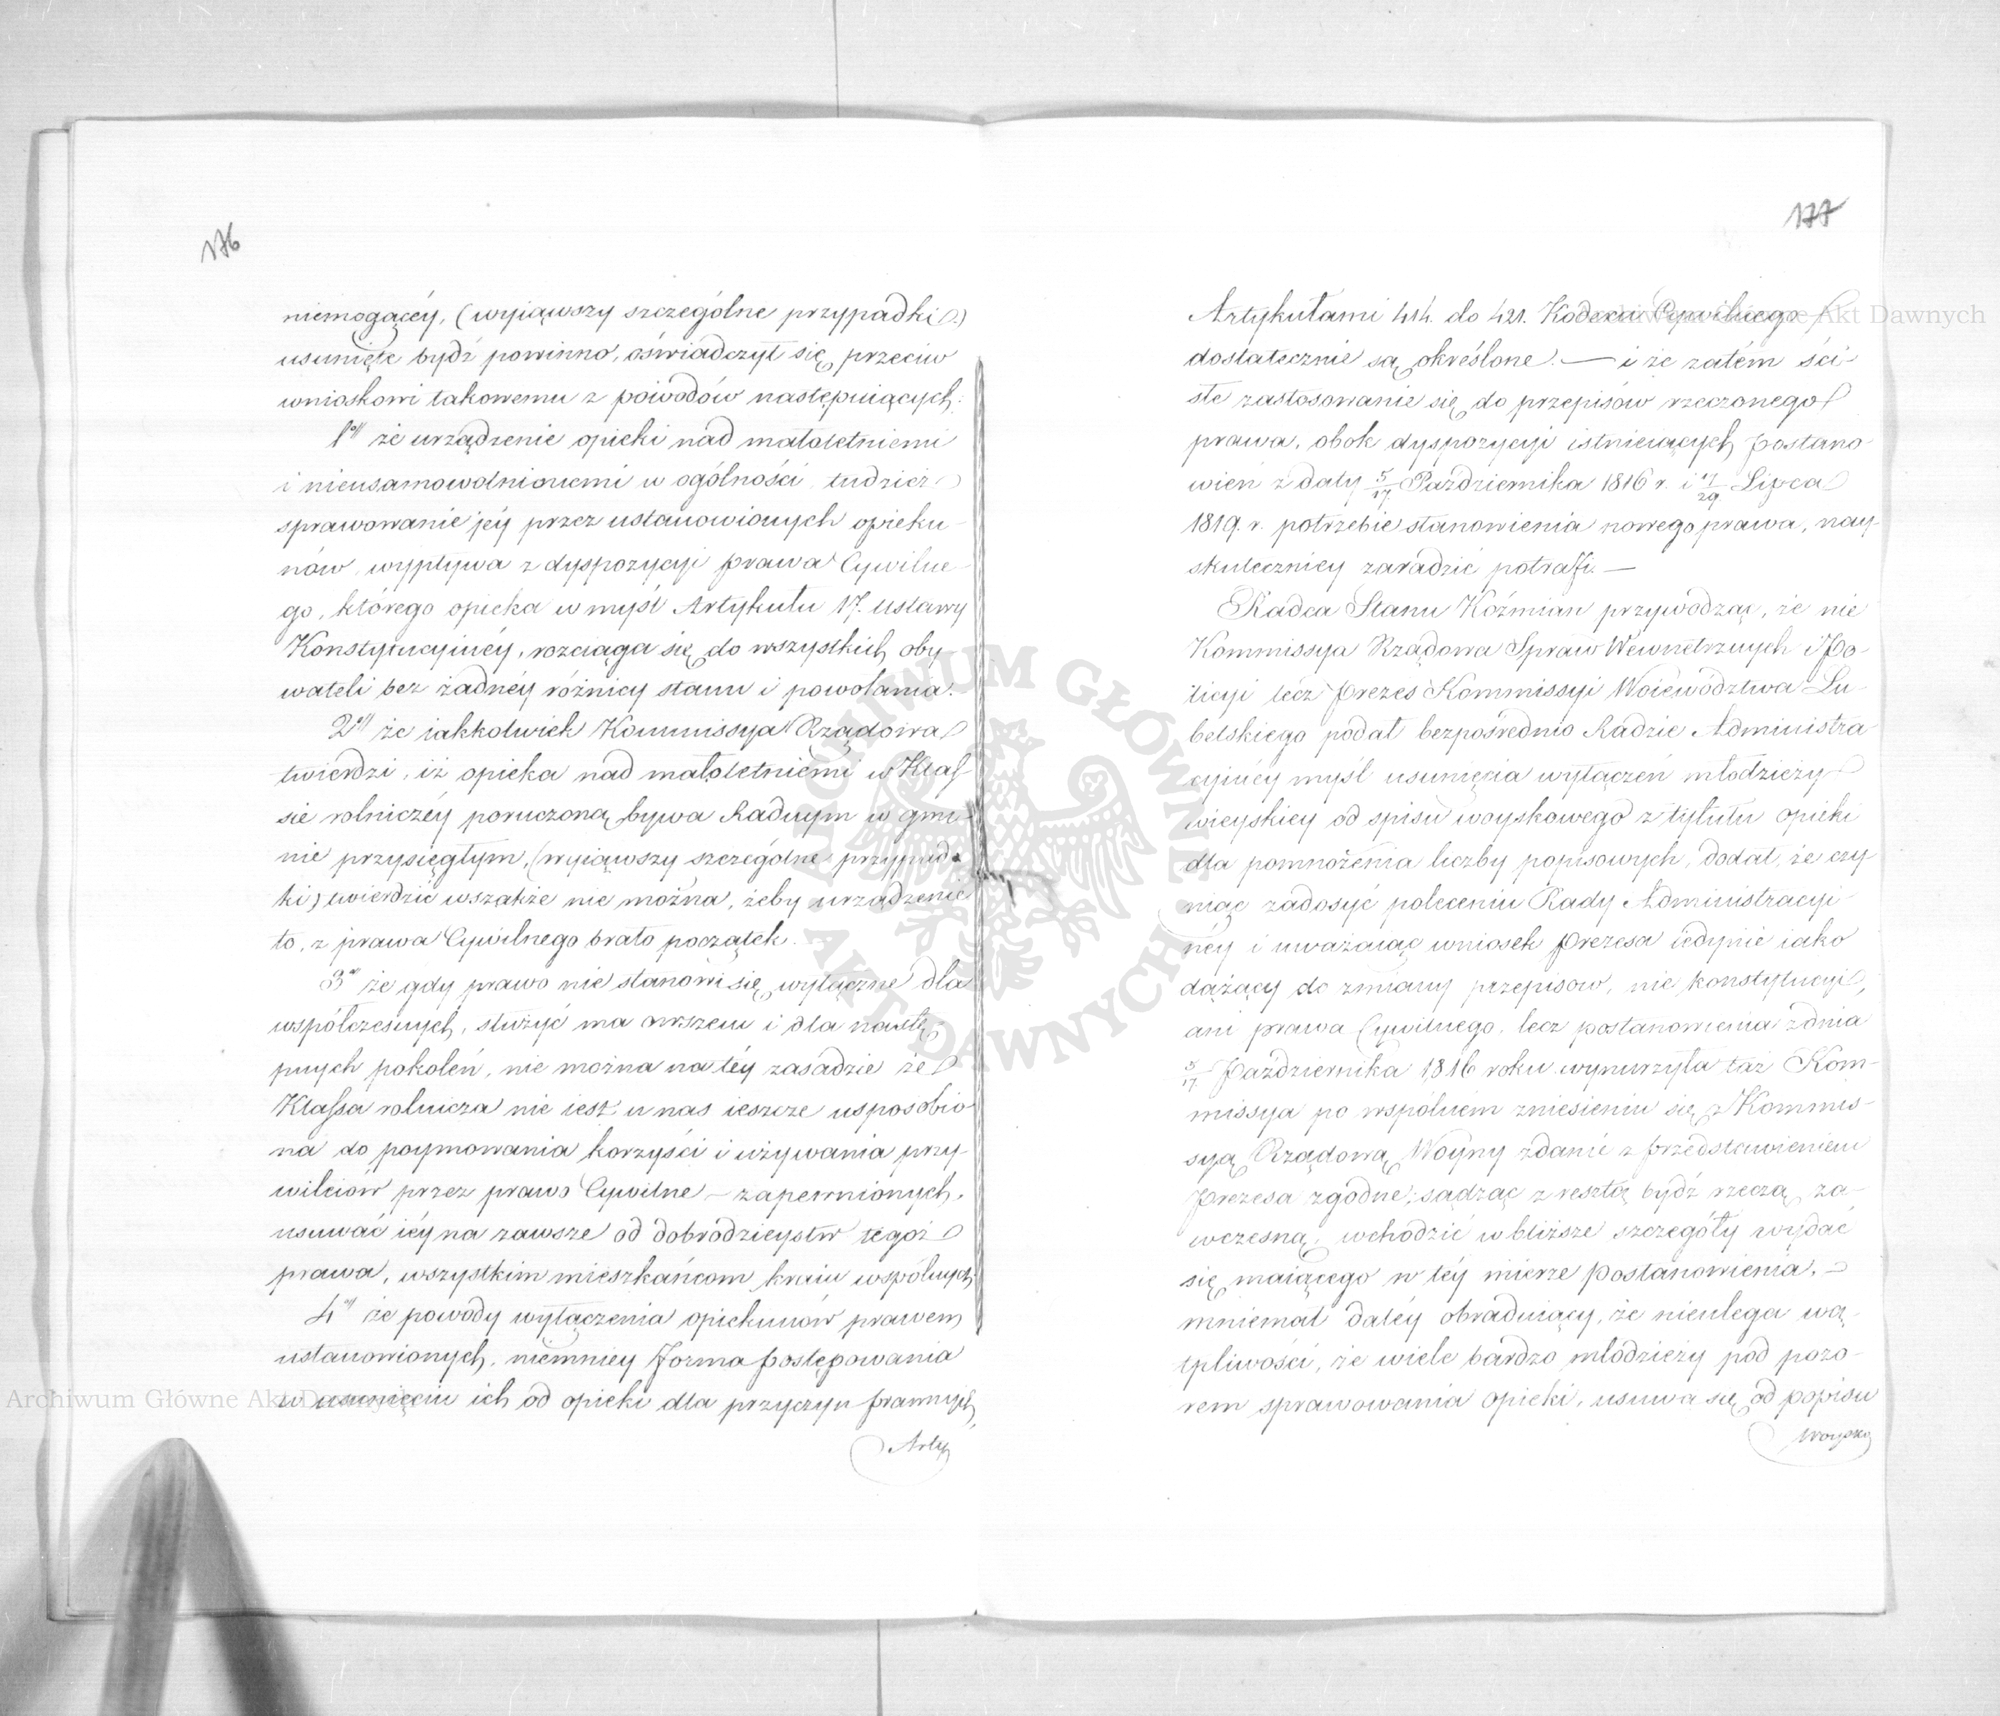 176
niemogącéy, (wyiąwszy szczególne przypadki)
usunięte bydź powinno, oświadczył się przeciw
wnioskowi takowemu z powodów następuiących:
1o że urządzenie opieki nad małoletniemi
i nieusamowolnionemi w ogólności, tudzież
sprawowanie jéy przez ustanowionych opieku-
nów, wypływa z dyspozycyi prawa Cywilne-
go, którego opieka w myśl Artykułu 17. Ustawy
Konstytucyinéy, rozciąga się do wszystkich oby-
wateli bez żadnéy różnicy stanu i powołania.
2o że iakkolwiek Kommissya Rządowa
twierdzi, iż opieka nad małoletniemi w Klas-
sie rolniczéy poruczoną bywa Radnym w gmi-
nie przysięgłym, (wyiąwszy szczególne przypad-
ki) twierdzić wszakże nie można, żeby urządzenie
to, z prawa Cywilnego brało początek.
3o że gdy prawo nie stanowi się wyłącznie dla
współczesnych, służyć ma owszem i dla nastę-
pnych pokoleń, nie można na téy zasadzie że
Klassa rolnicza nie iest u nas ieszcze usposobio-
na do poymowania korzyści i używania przy-
wileiów przez prawo Cywilne zapewnionych,
usuwać iéy na zawsze od dobrodzieystw tegoż
prawa, wszystkim mieszkańcom kraiu wspólnych,
4o że powody wyłączenia opiekunów prawem
ustanowionych, niemniey forma postępowania
w usunięciu ich od opieki dla przyczyn prawnych,
Arty
177
Artykułami 414. do 421. Kodexu Cywilnego
dostatecznie są określone. — i że zatém ści-
słe zastosowanie się do przepisów rzeczonego
prawa, obok dyspozycyi istnieiących Postano-
wień z daty 5/17 Października 1816 r. i 17/29 Lipca
1819. r. potrzebie stanowienia nowego prawa, nay-
skuteczniey zaradzić potrafi. —
Radca Stanu Koźmian przywodząc, że nie
Kommissya Rządowa Spraw Wewnętrznych i Po-
licyi lecz Prezes Kommissyi Woiewództwa Lu-
belskiego podał bezpośrednio Radzie Administra-
cyinéy myśl usunięcia wyłączeń młodzieży
wieyskiey od spisu woyskowego z tytułu opieki
dla pomnożenia liczby popisowych, dodał, że czy-
niąc zadosyć poleceniu Rady Administracyi-
néy i uważaiąc wniosek Prezesa iedynie iako
dążący do zmiany przepisów, nie konstytucyi,
ani prawa Cywilnego, lecz postanowienia z dnia
5/17 Października 1816 roku wynurzyła taż Kom-
missya po wspólném zniesieniu się z Kommis-
syą Rządową Woyny zdanie z przedstawieniem
Prezesa zgodne; sądząc z resztą bydź rzeczą za-
wczesną, wchodzić w bliższe szczegóły wydać
się maiącego w téy mierze postanowienia. —
mniemał daléy obraduiący, że nieulega wą-
tpliwości, że wiele bardzo młodzieży pod pozo-
rem sprawowania opieki, usuwa się od popisu
woysko
Archiwum Główne Akt Dawnych
ARCHIWUM GŁÓWNE AKT DAWNYCH
Archiwum Główne Akt Dawnych